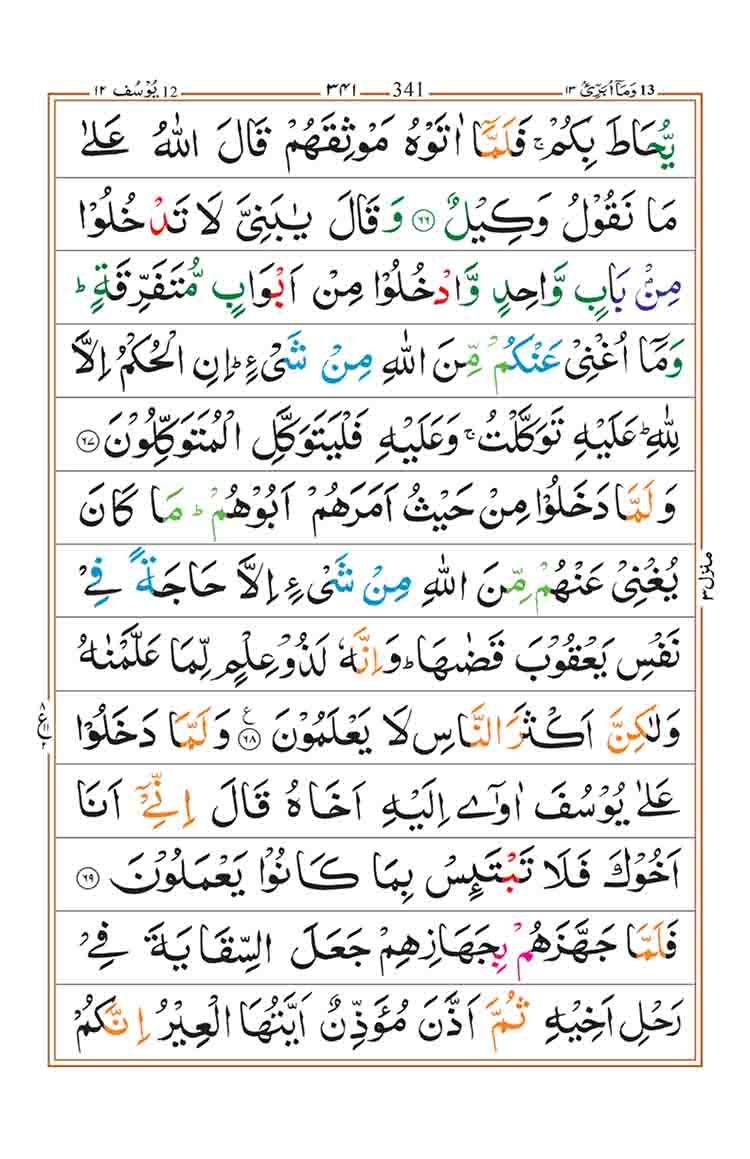 13 وَمَاۤ اُبَرِّئُ ١٣ 341 ٣٤١ 12 يُوۡسُف ١٢
يُّحَاطَ بِكُمۡ‌ۚ فَلَمَّاۤ اٰتَوۡهُ مَوۡثِقَهُمۡ قَالَ اللّٰهُ عَلٰى
مَا نَقُوۡلُ وَكِيۡلٌ ﴿٦٦﴾ وَقَالَ يٰبَنِىَّ لَا تَدۡخُلُوۡا
مِنۡۢ بَابٍ وَّاحِدٍ وَّادۡخُلُوۡا مِنۡ اَبۡوَابٍ مُّتَفَرِّقَةٍ‌ؕ
وَمَاۤ اُغۡنِىۡ عَنۡكُمۡ مِّنَ اللّٰهِ مِنۡ شَىۡءٍ‌ؕ اِنِ الۡحُكۡمُ اِلَّا
لِلّٰهِ‌ؕ عَلَيۡهِ تَوَكَّلۡتُ‌ۚ وَعَلَيۡهِ فَلۡيَتَوَكَّلِ الۡمُتَوَكِّلُوۡنَ ﴿٦٧﴾
وَلَمَّا دَخَلُوۡا مِنۡ حَيۡثُ اَمَرَهُمۡ اَبُوۡهُمۡؕ مَا كَانَ
يُغۡنِىۡ عَنۡهُمۡ مِّنَ اللّٰهِ مِنۡ شَىۡءٍ اِلَّا حَاجَةً فِىۡ
نَفۡسِ يَعۡقُوۡبَ قَضٰٮهَا‌ؕ وَاِنَّهٗ لَذُوۡ عِلۡمٍ لِّمَا عَلَّمۡنٰهُ
وَلٰكِنَّ اَكۡثَرَ النَّاسِ لَا يَعۡلَمُوۡنَ ﴿٦٨﴾ وَلَمَّا دَخَلُوۡا
عَلٰى يُوۡسُفَ اٰوٰٓى اِلَيۡهِ اَخَاهُ‌ قَالَ اِنِّىۡۤ اَنَا
اَخُوۡكَ فَلَا تَبۡتَٮِٕسۡ بِمَا كَانُوۡا يَعۡمَلُوۡنَ ﴿٦٩﴾
فَلَمَّا جَهَّزَهُمۡ بِجَهَازِهِمۡ جَعَلَ السِّقَايَةَ فِىۡ
رَحۡلِ اَخِيۡهِ ثُمَّ اَذَّنَ مُؤَذِّنٌ اَيَّتُهَا الۡعِيۡرُ اِنَّكُمۡ
منزل ٣
ع